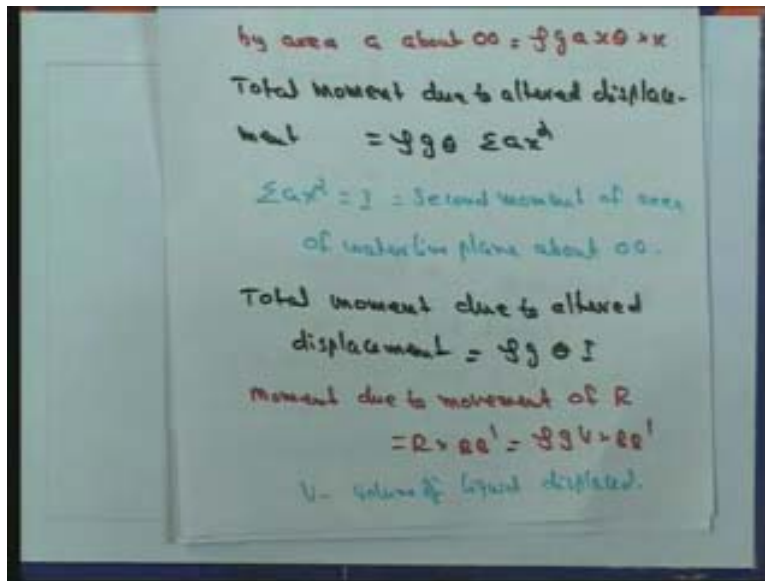 by area a about OO = ρgaxθ × x
Total moment due to altered displace-
ment = ρgθ Σax²
Σax² = I = Second moment of area
of waterline plane about OO.
Total moment due to altered
displacement = ρgθI
moment due to movement of R
= R × BB' = ρgV × BB'
V - volume of liquid displaced.